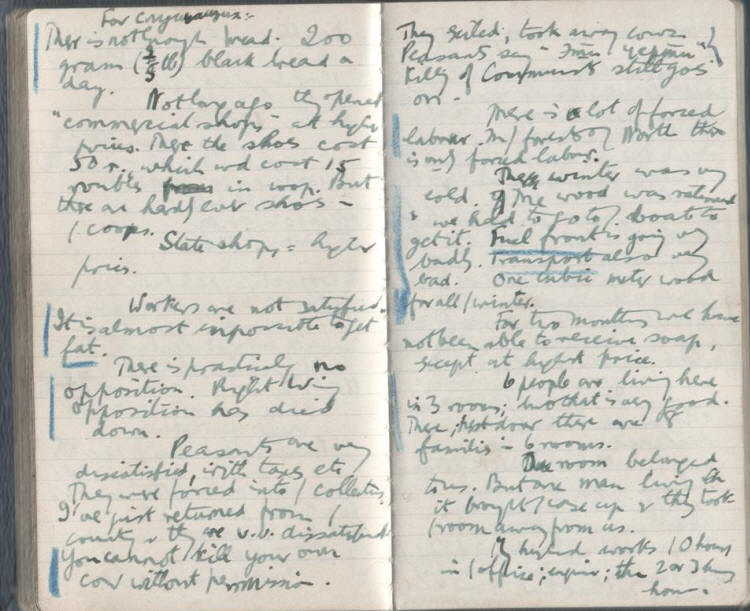 For
There is not enough bread. 200
gram (⅖ lb) black bread a
day.
Not long ago they opened
"commercial shops" at higher
prices. There the shoes cost
50 r., which wd cost 15
roubles in coop. But
there are hardly ever shoes in
/ coops.
State shops = higher
prices.
Workers are not satisfied.
It is almost impossible to get
fat.
There is practically no
opposition. Right Wing
opposition has died
down.
Peasants are very
dissatisfied, with taxes etc
They were forced into / collectives.
I've just returned from /
country & they are v.v. dissatisfied
You cannot kill your own
cow without permission.
They seized, took away cows.
Peasants say "
Killing of Communists still goes
on.
There is a lot of forced
labour. In / forests of / North there
is only forced labour.
The winter was very
cold. The wood was rationed
& we had to go to / boat to
get it. Fuel front is going very
badly. Transport also very
bad. One cubic meter wood
for all / winter.
For two months we have
not been able to receive soap,
except at highest price.
6 people are living here
in 3 rooms; but that is very good.
There, next door there are 8
families in 6 rooms.
room belonged
to us. But one man living
it brought / case up & they took
/ room away from us.
My husband works 10 hours
in / office; engineer; then 2 or 3 hours
home.